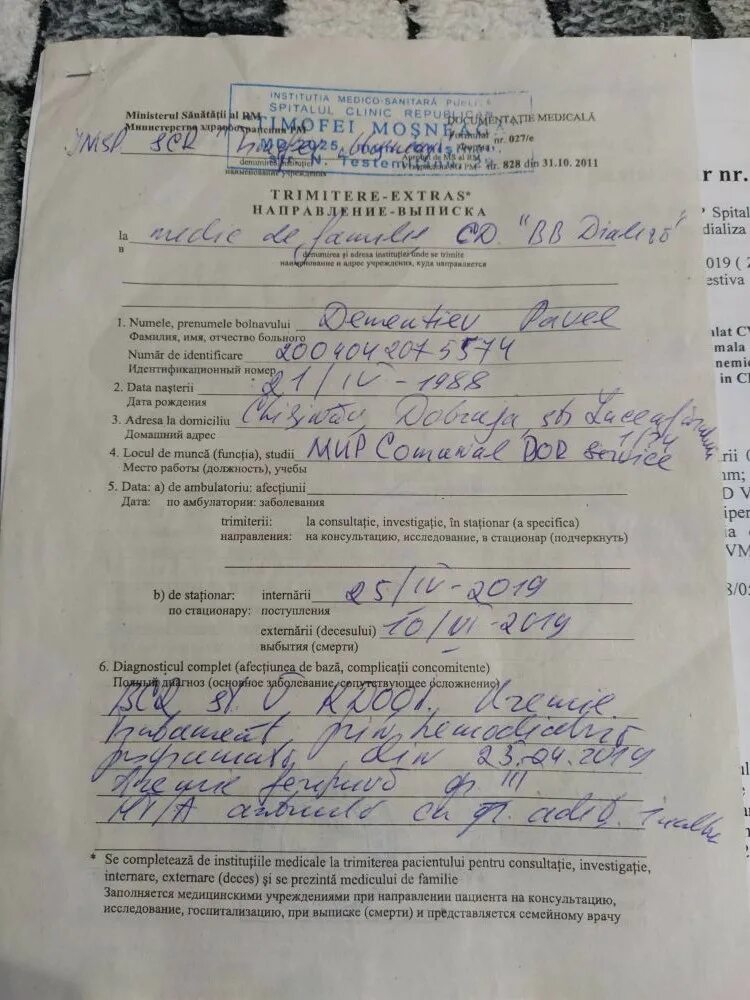 INSTITUTIA MEDICO-SANITARĂ PUBLICĂ
SPITALUL CLINIC REPUBLICAN
TIMOFEI MOȘNEAGA
MD-2025
str. N. Testemițanu
Ministerul Sănătății al RM
Министерство здравоохранения РM
DOCUMENTAȚIE MEDICALĂ
nr. 027/e
Aprobat de MS al RM
nr. 828 din 31.10. 2011
IMSP SCR "Timofei Moșneaga"
denumirea instituției
наименование учреждения
TRIMITERE-EXTRAS*
НАПРАВЛЕНИЕ-ВЫПИСКА
la medic de familie CD. "BB Dializă"
в
denumirea și adresa instituției unde se trimite
наименование и адрес учреждения, куда направляется
1. Numele, prenumele bolnavului Dementiev Pavel
Фамилия, имя, отчество больного
Număr de identificare 2004042075574
Идентификационный номер
2. Data nașterii 21/IV-1988
Дата рождения
3. Adresa la domiciliu Chișinău, Dobruja, str
Домашний адрес
4. Locul de muncă (funcția), studii MИP Comunal DOR service
Место работы (должность), учебы
5. Data: a) de ambulatoriu: afecțiunii
Дата: по амбулатории: заболевания
trimiterii: la consultație, investigație, în staționar (a specifica)
направления: на консультацию, исследование, в стационар (подчеркнуть)
b) de staționar: internării 25/IV-2019
по стационару: поступления
externării (decesului) 10/VI-2019
выбытия (смерти)
6. Diagnosticul complet (afecțiunea de bază, complicații concomitente)
Полный диагноз (основное заболевание, сопутствующее осложнение)
BCR st. V KDOQI. Uremie
tratament prin hemodializă
programată din 23.04.2019
Anemie feriprivă gr. III
HTA
* Se completează de instituțiile medicale la trimiterea pacientului pentru consultație, investigație,
internare, externare (deces) și se prezintă medicului de familie
Заполняется медицинскими учреждениями при направлении пациента на консультацию,
исследование, госпитализацию, при выписке (смерти) и представляется семейному врачу
r nr.
Spital
dializa
019 (
estiva